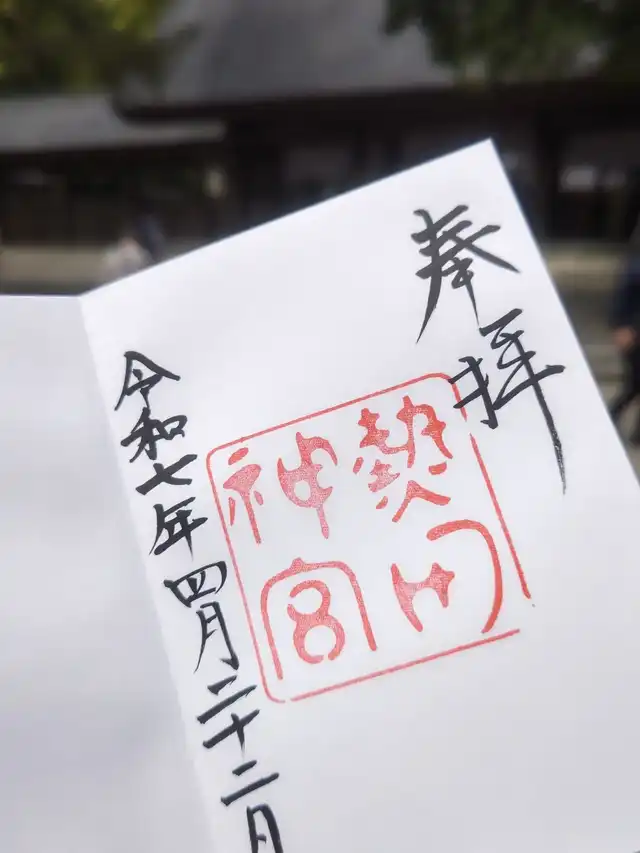 奉拝
熱田
神宮
令和七年四月二十二日